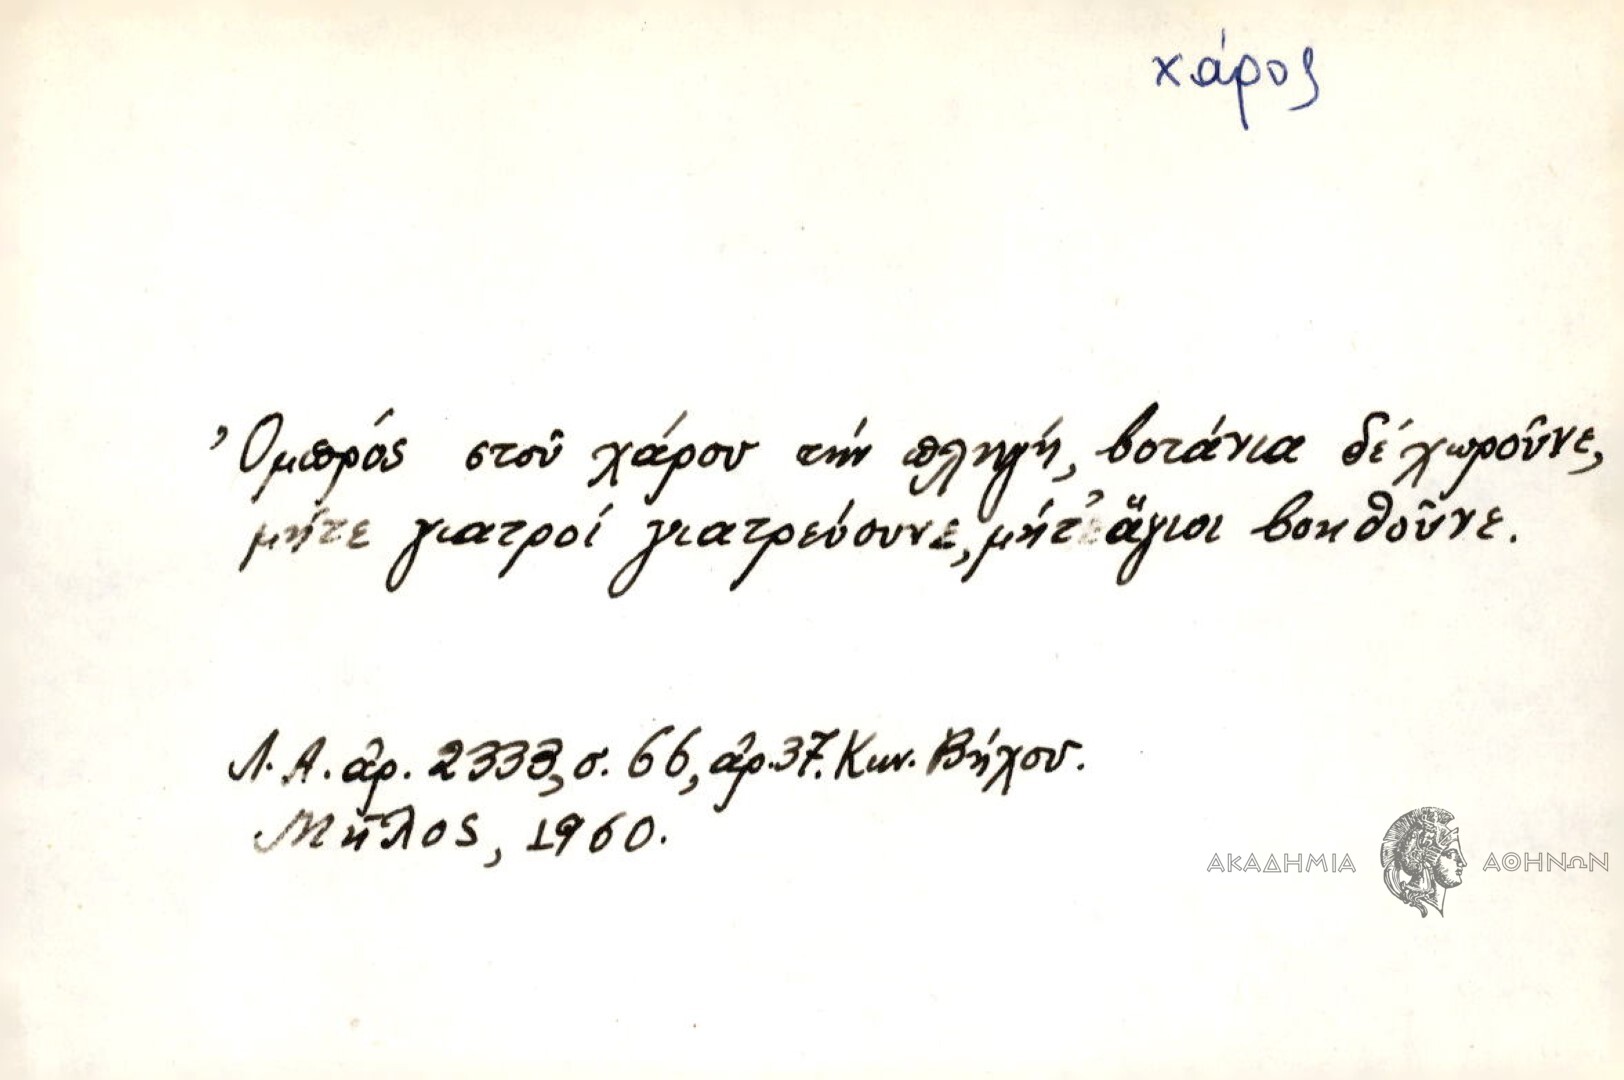 χάρος
Ὀμπρός στοῦ χάρου τήν πληγή, βοτάνια δέ χωροῦνε,
μήτε γιατροί γιατρεύουνε, μήτ' ἅγιοι βοηθοῦνε.
Λ. Α. ἀρ. 2333, σ. 66, ἀρ. 37. Κων. Βήχου.
Μῆλος, 1960.
ΑΚΑΔΗΜΙΑ ΑΘΗΝΩΝ